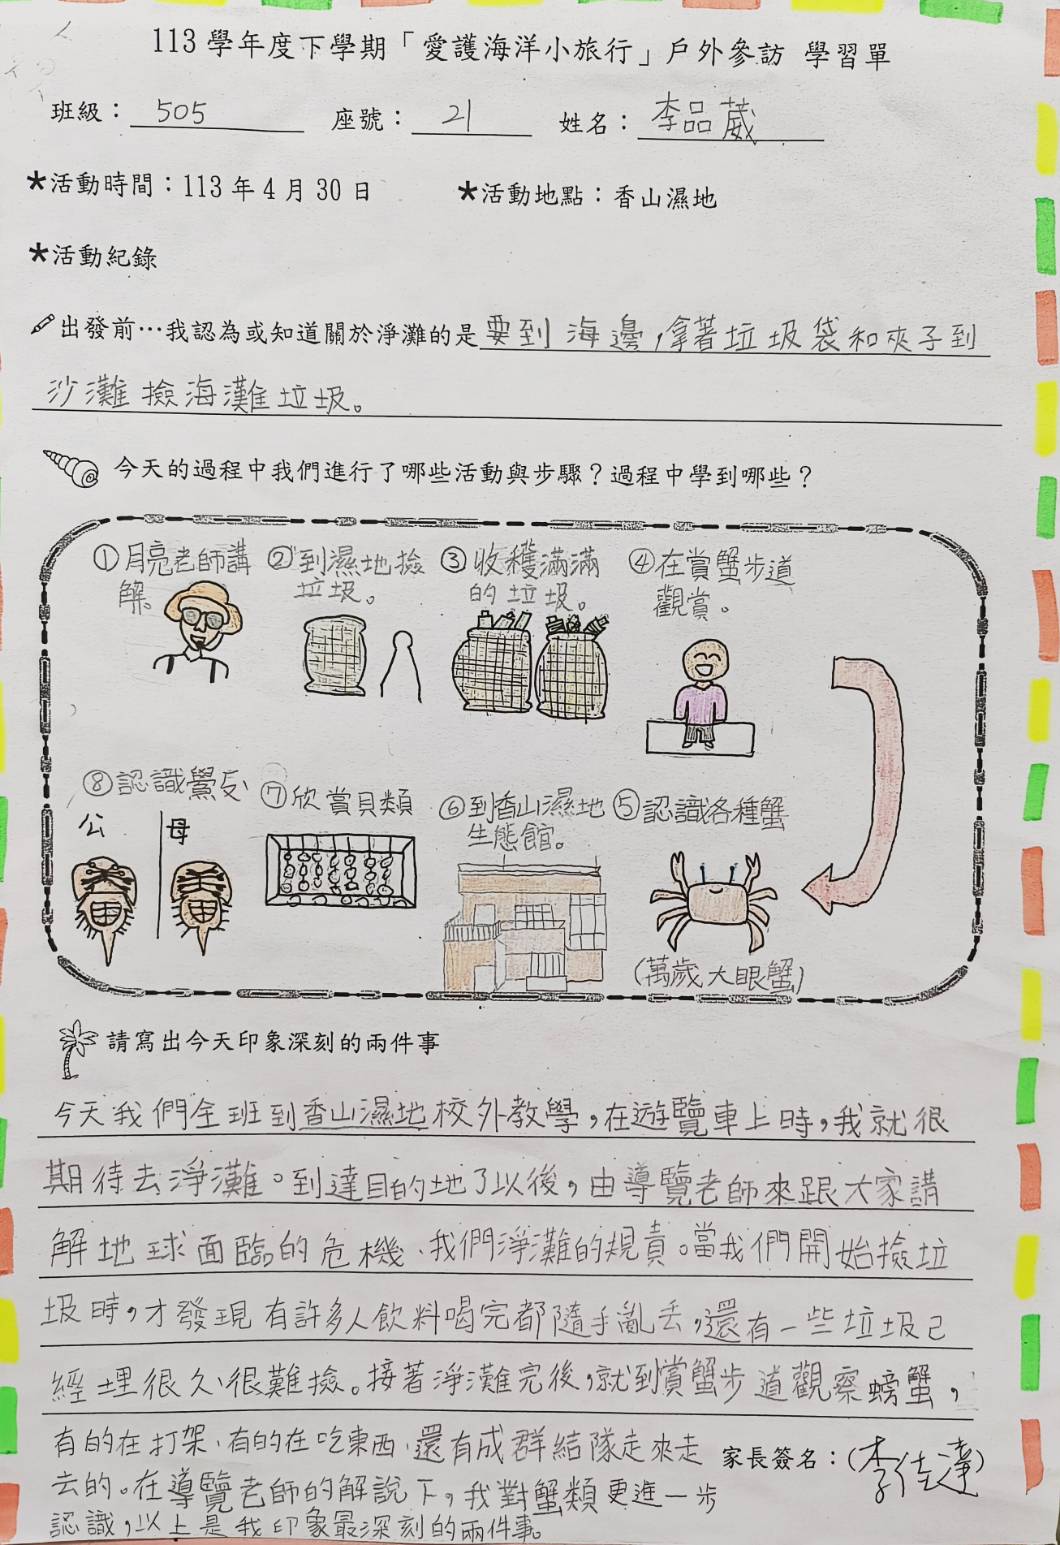 113 學年度下學期「愛護海洋小旅行」戶外參訪 學習單
班級：505 座號：21 姓名：李品葳
★活動時間：113 年 4 月 30 日 ★活動地點：香山濕地
★活動紀錄
出發前…我認為或知道關於淨灘的是要到海邊,拿著垃圾袋和夾子到
沙灘撿海灘垃圾。
今天的過程中我們進行了哪些活動與步驟？過程中學到哪些？
①月亮老師講解
②到濕地撿垃圾。
③收穫滿滿的垃圾。
④在賞蟹步道觀賞。
⑤認識各種蟹
(萬歲大眼蟹)
⑥到香山濕地生態館。
⑦欣賞貝類
⑧認識鱟
公 母
請寫出今天印象深刻的兩件事
今天我們全班到香山濕地校外教學,在遊覽車上時,我就很
期待去淨灘。到達目的地了以後,由導覽老師來跟大家講
解地球面臨的危機、我們淨灘的規責。當我們開始撿垃
圾時,才發現有許多人飲料喝完都隨手亂丟,還有一些垃圾已
經埋很久、很難撿。接著淨灘完後,就到賞蟹步道觀察螃蟹,
有的在打架、有的在吃東西、還有成群結隊走來走 家長簽名：(李佳達)
去的。在導覽老師的解說下,我對蟹類更進一步
認識,以上是我印象最深刻的兩件事。